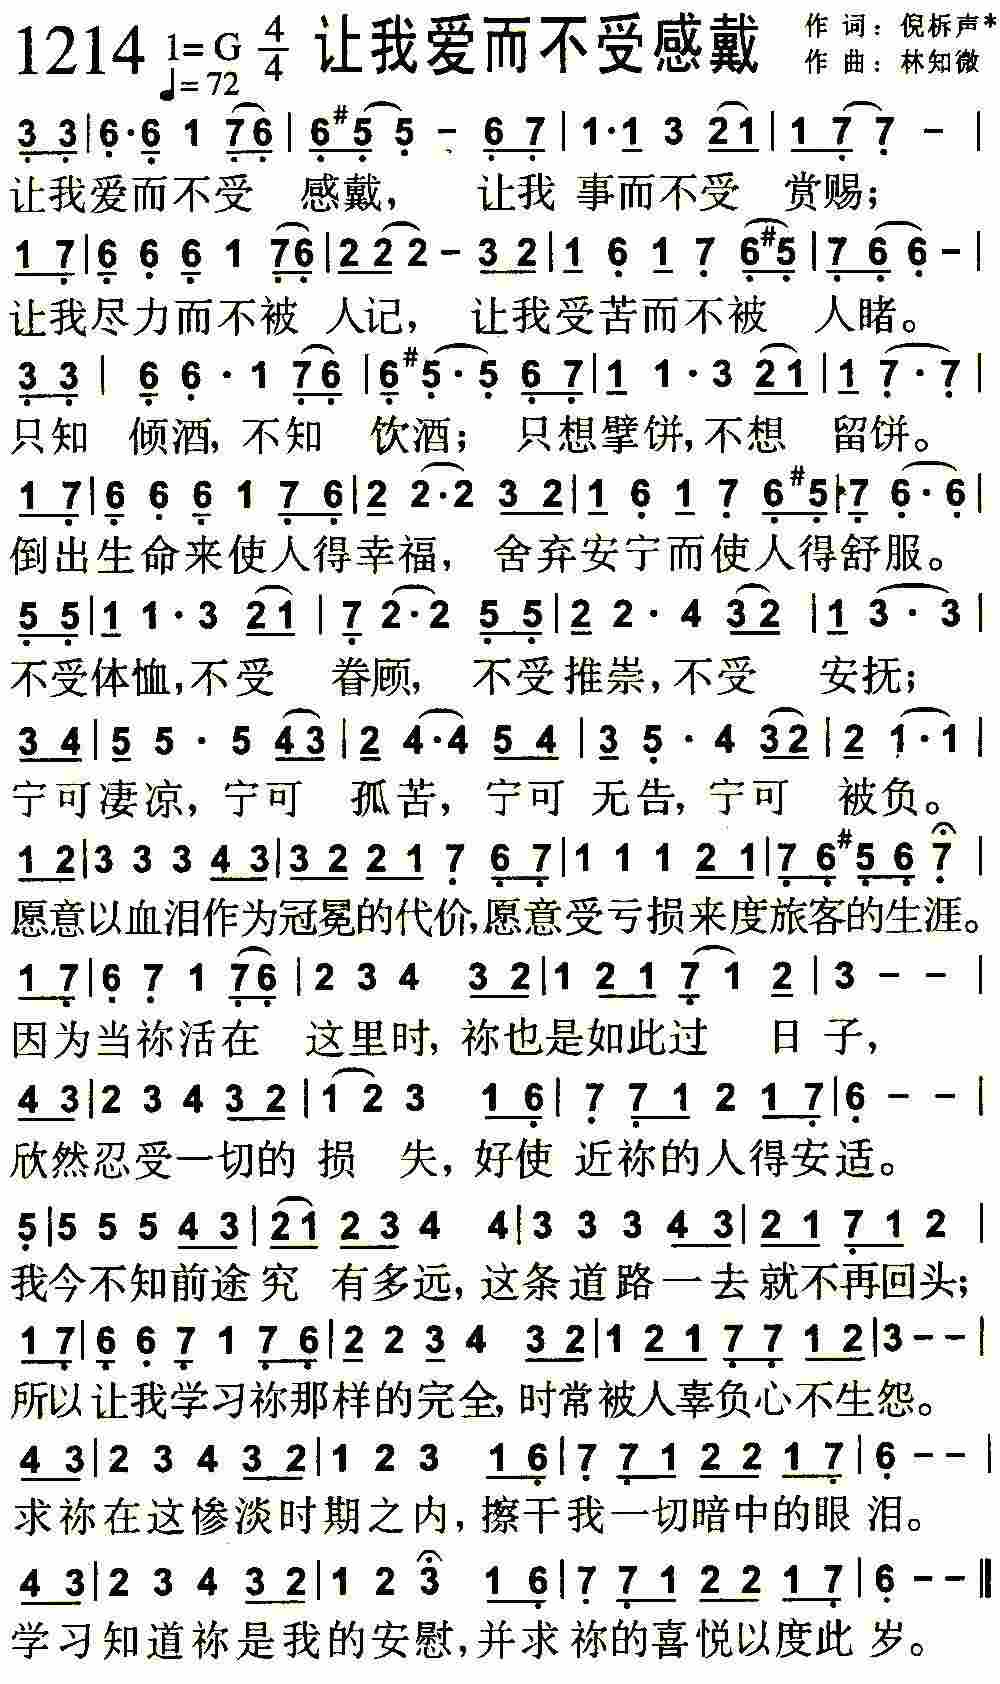 1214 1=G 4/4 ♩=72 让我爱而不受感戴 作词：倪柝声*
作曲：林知微
3 3|6·6 1 76|6#5 5 - 6 7|1·1 3 21|1 7 7 - |
让我爱而不受 感戴， 让我 事而不受 赏赐；
1 7|6 6 6 1 76|2 2 2 - 3 2|1 6 1 7 6#5|7 6 6 - |
让我尽力而不被 人记， 让我受苦而不被 人睹。
3 3| 6 6·1 76|6#5·5 6 7|1 1·3 21|1 7·7|
只知 倾酒，不知 饮酒； 只想擘饼，不想 留饼。
1 7|6 6 6 1 7 6|2 2·2 3 2|1 6 1 7 6#5|7 6·6|
倒出生命来使人得幸福， 舍弃安宁而使人得舒服。
5 5|1 1·3 21|7 2·2 5 5|2 2·4 32|1 3·3|
不受体恤，不受 眷顾， 不受推崇，不受 安抚；
3 4|5 5·5 43|2 4·4 5 4|3 5·4 32|2 1·1|
宁可凄凉，宁可 孤苦，宁可 无告，宁可 被负。
1 2|3 3 3 4 3|3 2 2 1 7 6 7|1 1 1 2 1|7 6#5 6 7|
愿意以血泪作为冠冕的代价，愿意受亏损来度旅客的生涯。
1 7|6 7 1 76|2 3 4 3 2|1 2 1 7 1 2|3 - - |
因为当祢活在 这里时，祢也是如此过 日子，
4 3|2 3 4 3 2|1 2 3 1 6|7 7 1 2 1 7|6 - - |
欣然忍受一切的 损 失，好使 近祢的人得安适。
5|5 5 5 4 3|21 2 3 4 4|3 3 3 4 3|2 1 7 1 2 |
我今不知前途究 有多远，这条道路一去就不再回头；
1 7|6 6 7 1 7 6|2 2 3 4 3 2|1 2 1 7 7 1 2|3 - - |
所以让我学习祢那样的完全，时常被人辜负心不生怨。
4 3|2 3 4 3 2|1 2 3 1 6|7 7 1 2 2 1 7|6 - - |
求祢在这惨淡时期之内，擦干我一切暗中的眼泪。
4 3|2 3 4 3 2|1 2 3 1 6|7 7 1 2 2 1 7|6 - - ‖
学习知道祢是我的安慰，并求祢的喜悦以度此岁。